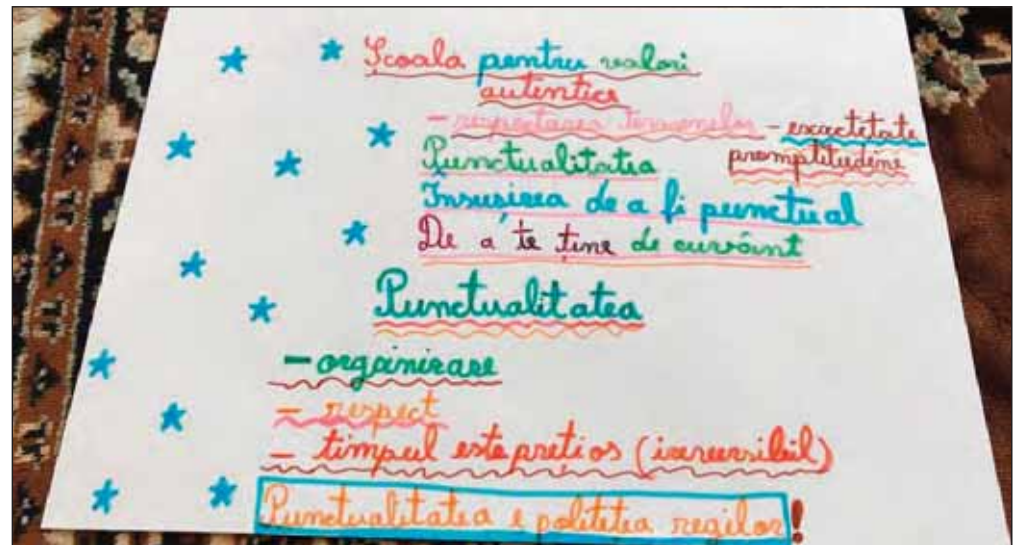 Școala pentru valori
autentice
- respectarea termenelor - exactitate
promptitudine
Punctualitatea
Însușirea de a fi punctual
De a te ține de cuvânt
Punctualitatea
- organizare
- respect
- timpul este prețios (ireversibil)
Punctualitatea e politețea regilor!